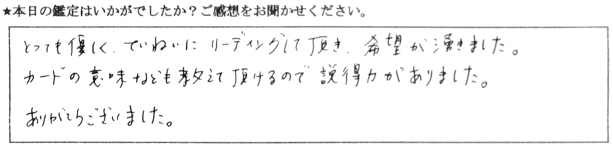 ★本日の鑑定はいかがでしたか？ご感想をお聞かせください。
とっても優しく、ていねいにリーディングして頂き、希望が湧きました。
カードの意味なども教えて頂けるので説得力がありました。
ありがとうございました。